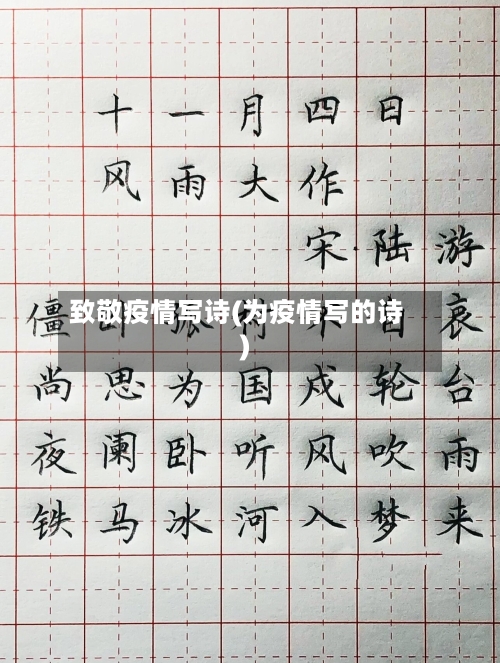 十一月四日
风雨大作
宋·陆游
僵 哀
致敬疫情写诗(为疫情写的诗
)
尚思为国戍轮台
夜阑卧听风吹雨
铁马冰河入梦来